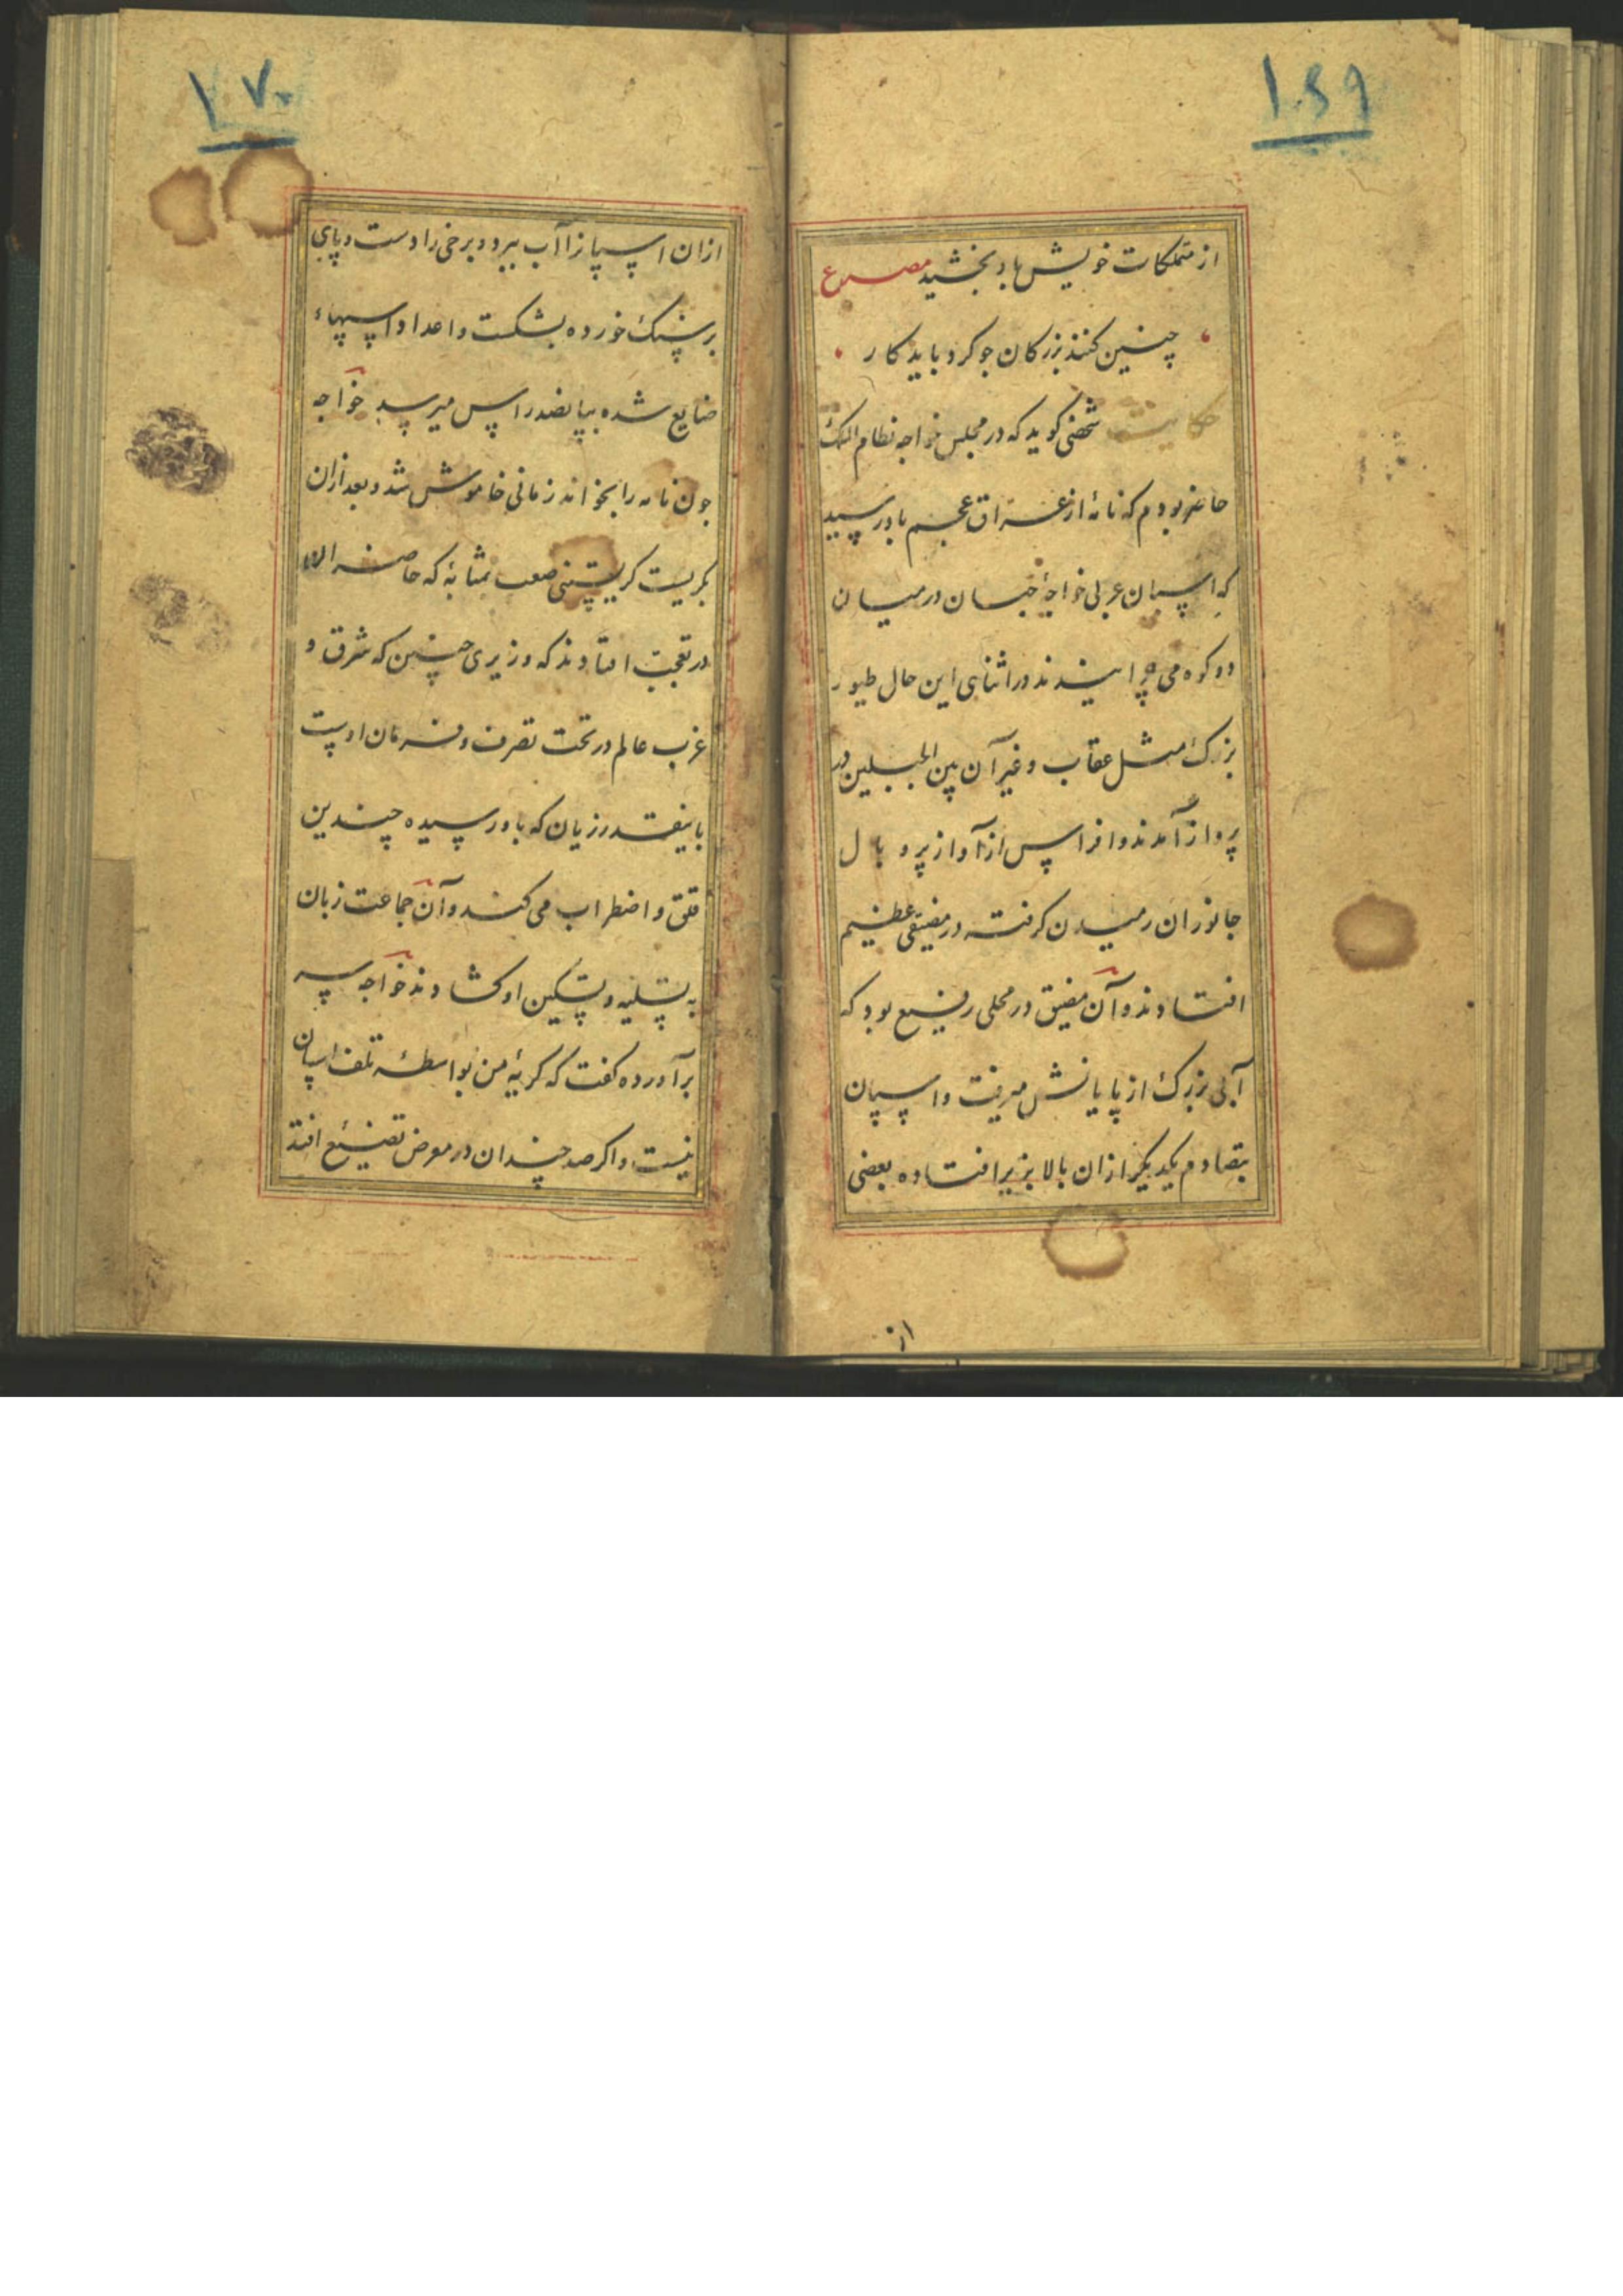 ۱۶۹
از متملکات خویش باو بخشید مصرع
چنین کنند بزرکان جو کرد باید کار
حکایت شخصی کوید که در مجلس خواجه نظام الملک
حاضر بودم که نامهٔ از عراق عجم باو رسید
که اسپان عربی خواجهٔ جهان در میان
دو کوه می چرانیدند در اثنای این حال طیور
بزرک مثل عقاب و غیر آن بین الجبلین در
پرواز آمدند و افراس از آواز پر و بال
جانوران رمیدن کرفته در مضیقی عظیم
افتادند و آن مضیق در محلی رفیع بود که
آبی بزرک از پایانش میرفت و اسپان
بتصادم یکدیکر از ان بالا بزیر افتاده بعضی
از
۱۷۰
ازان اسپانرا آب ببرد و برخی را دست و پای
بر سنک خورده بشکست و اعداد اسپهاء
ضایع شده بپانصد راس میرسد خواجه
جون نامه را بخواند زمانی خاموش شد و بعد ازان
بکریست کریستنی صعب بمثابهٔ که حاضران
در تعجب افتادند که وزیری چنین که شرق و
غرب عالم در تحت تصرف و فرمان اوست
باینقدر زیان که باو رسیده چندین
قلق و اضطراب می کند و آن جماعت زبان
به تسلیه و تسکین او کشادند خواجه سر
برآورده کفت که کریهٔ من بواسطهٔ تلف اسپان
نیست و اکر صد چندان در معرض تضییع افتد